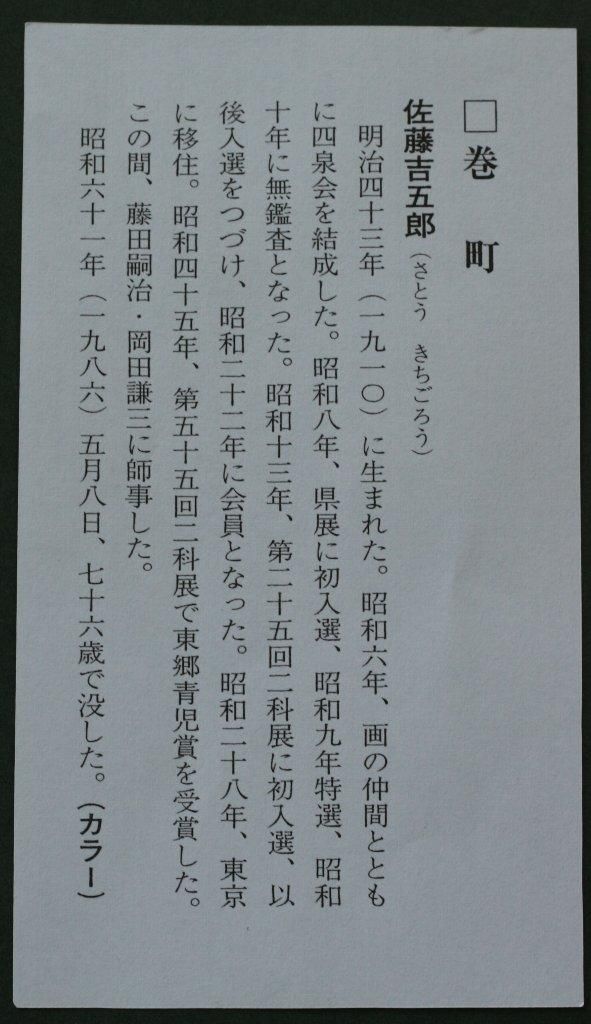 □巻　町
佐藤吉五郎（さとう　きちごろう）
明治四十三年（一九一〇）に生まれた。昭和六年、画の仲間ととも
に四泉会を結成した。昭和八年、県展に初入選、昭和九年特選、昭和
十年に無鑑査となった。昭和十三年、第二十五回二科展に初入選、以
後入選をつづけ、昭和二十二年に会員となった。昭和二十八年、東京
に移住。昭和四十五年、第五十五回二科展で東郷青児賞を受賞した。
この間、藤田嗣治・岡田謙三に師事した。
昭和六十一年（一九八六）五月八日、七十六歳で没した。（カラー）